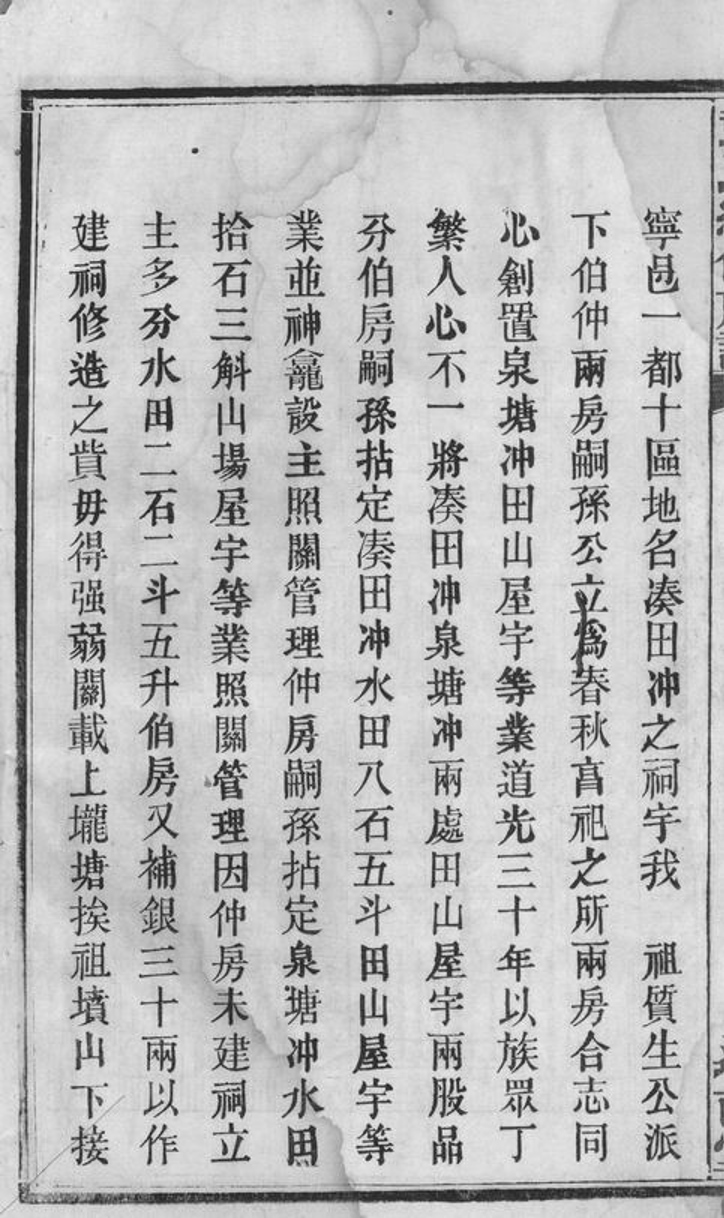 寧邑一都十區地名湊田冲之祠宇我　祖質生公派
下伯仲兩房嗣孫公立爲春秋亯祀之所兩房合志同
心創置泉塘冲田山屋宇等業道光三十年以族眾丁
繁人心不一將湊田冲泉塘冲兩處田山屋宇兩股品
分伯房嗣孫拈定湊田冲水田八石五斗田山屋宇等
業並神龕設主照關管理仲房嗣孫拈定泉塘冲水田
拾石三斛山場屋宇等業照關管理因仲房未建祠立
主多分水田二石二斗五升伯房又補銀三十兩以作
建祠修造之貲毋得强弱關載上壠塘挨祖墳山下接